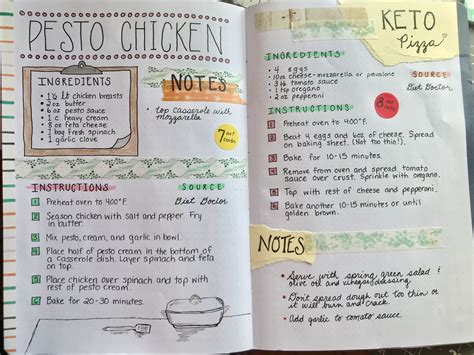 PESTO CHICKEN
INGREDIENTS
• 1½ lb chicken breasts
• 2oz butter
• 6oz pesto sauce
• 1 c heavy cream
• 8oz feta cheese
• 1 bag fresh spinach
• 1 garlic clove
NOTES
• top casserole with
mozzarella
7 net
carbs
INSTRUCTIONS
SOURCE
Diet Doctor
1 Preheat oven to 400°F.
2 Season chicken with salt and pepper. Fry
in butter.
3 Mix pesto, cream, and garlic in bowl.
4 Place half of pesto cream in the bottom of
a casserole dish. Layer spinach and feta
on top.
5 Place chicken over spinach and top with
rest of pesto cream.
6 Bake for 20-30 minutes.
KETO
Pizza
INGREDIENTS
• 4 eggs
• 10oz cheese-mozzarella or provolone
• 3 tbsp tomato sauce
• 1 tsp oregano
• 2oz pepperoni
SOURCE
Diet Doctor
8 net
carbs
INSTRUCTIONS
1 Preheat oven to 400°F.
2 Beat 4 eggs and 6oz of cheese. Spread
on baking sheet. (Not too thin!).
3 Bake for 10-15 minutes.
4 Remove from oven and spread tomato
sauce over crust. Sprinkle with oregano.
5 Top with rest of cheese and pepperoni.
6 Bake another 10-15 minutes or until
golden brown.
NOTES
• Serve with spring green salad &
olive oil and vinegar dressing
• Don't spread dough out too thin or
it will burn and crack.
• Add garlic to tomato sauce